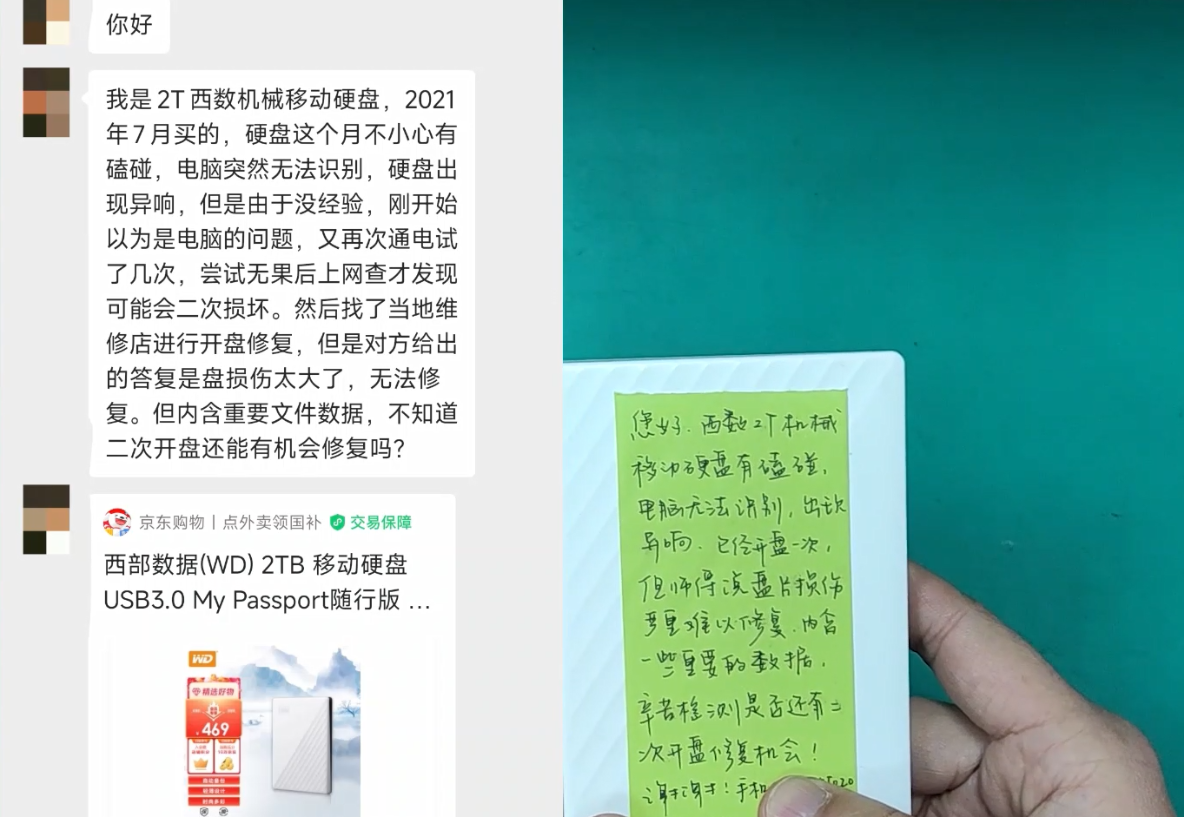 你好
我是2T西数机械移动硬盘，2021
年7月买的，硬盘这个月不小心有
磕碰，电脑突然无法识别，硬盘出
现异响，但是由于没经验，刚开始
以为是电脑的问题，又再次通电试
了几次，尝试无果后上网查才发现
可能会二次损坏。然后找了当地维
修店进行开盘修复，但是对方给出
的答复是盘损伤太大了，无法修
复。但内含重要文件数据，不知道
二次开盘还能有机会修复吗？
京东购物丨点外卖领国补 交易保障
西部数据(WD) 2TB 移动硬盘
USB3.0 My Passport随行版 …
WD
精选好物
469
您好。西数2T机械
移动硬盘有磕碰，
电脑无法识别，出现
异响。已经开盘一次，
但师傅说盘片损伤
严重难以修复。内含
一些重要的数据，
辛苦检测是否还有二
次开盘修复机会！
谢谢！手机